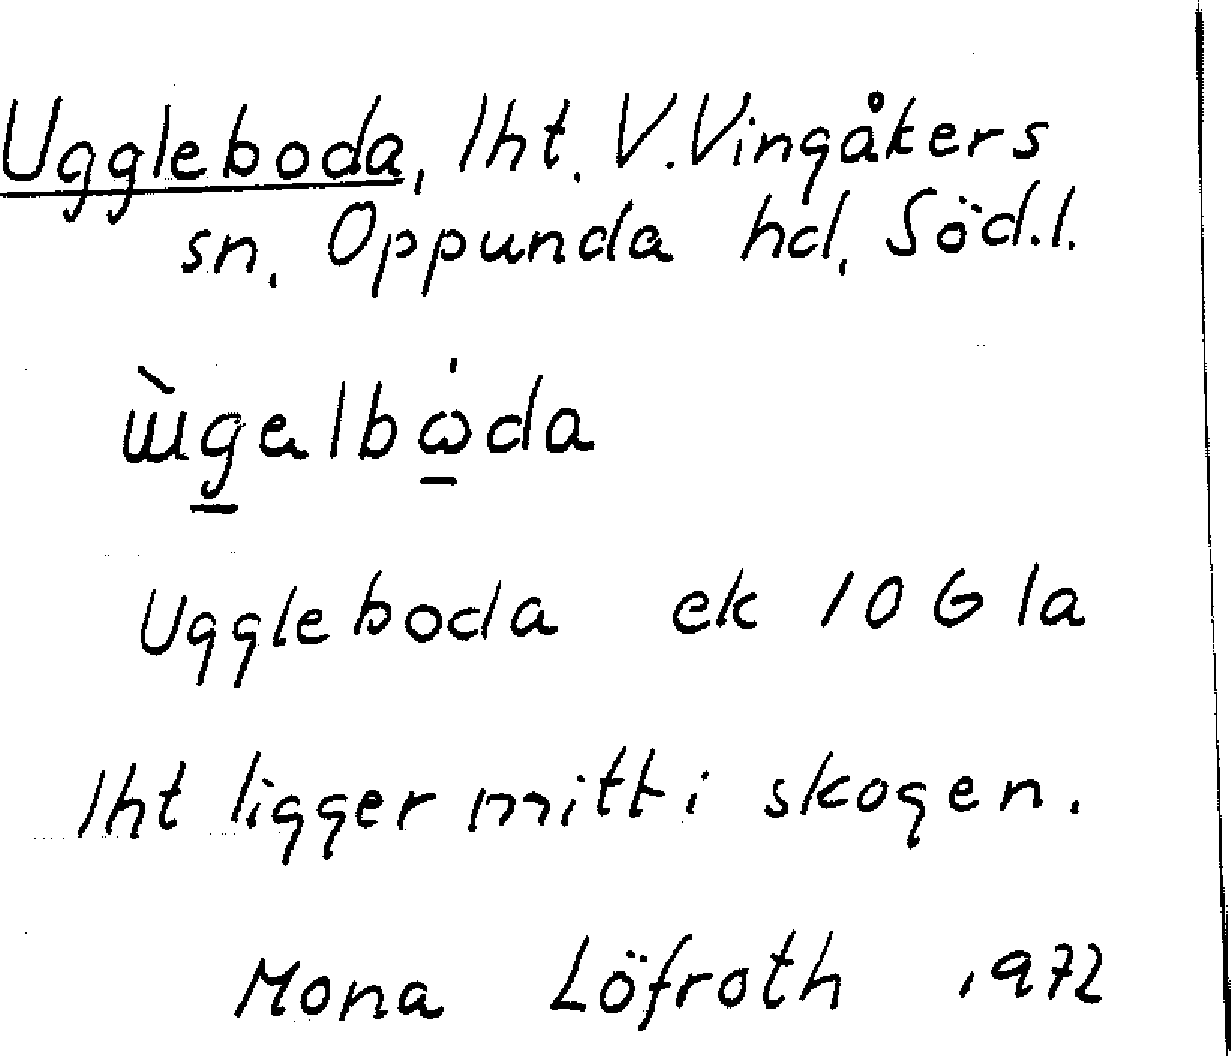 Uggleboda, lht. V. Vingåkers
sn. Oppunda hd, Söd.l.
Uggleboda ek 10 G la
lht ligger mitt i skogen.
Mona Löfroth 1972